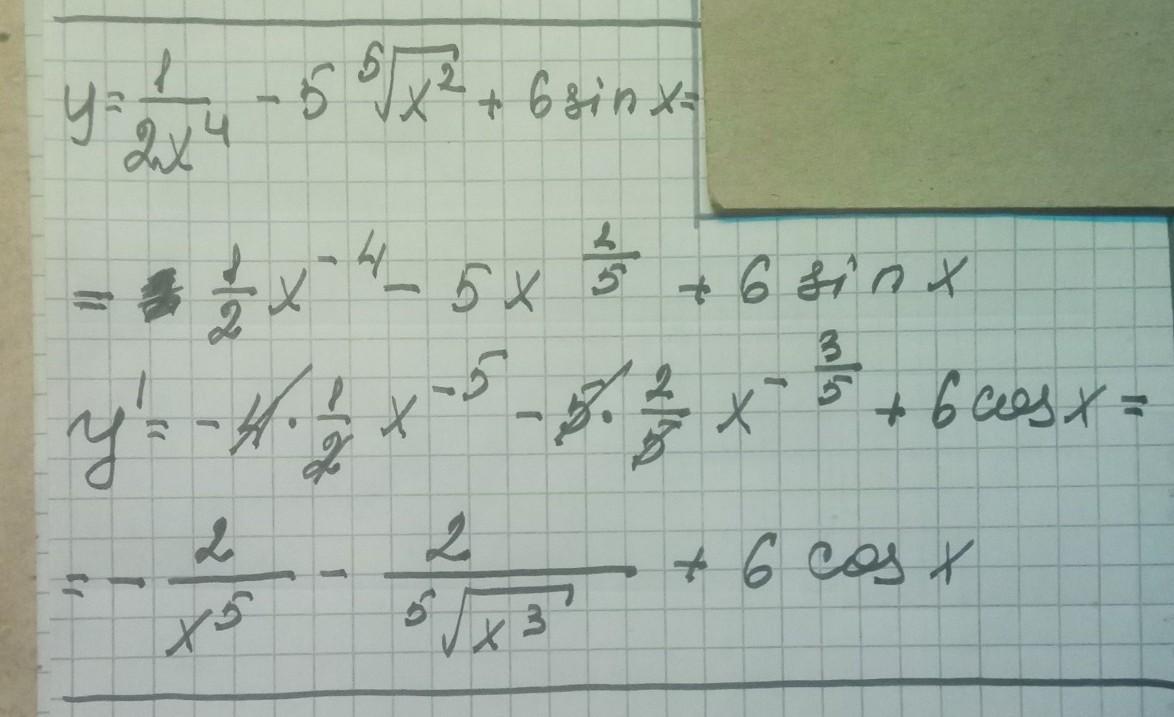 y = 1/(2x⁴) - 5 ⁵√(x²) + 6 sin x =
= 1/2 x^(-4) - 5x^(2/5) + 6 sin x
y' = -4 · 1/2 x^(-5) - 5 · 2/5 x^(-3/5) + 6 cos x =
= - 2/x⁵ - 2/⁵√(x³) + 6 cos x